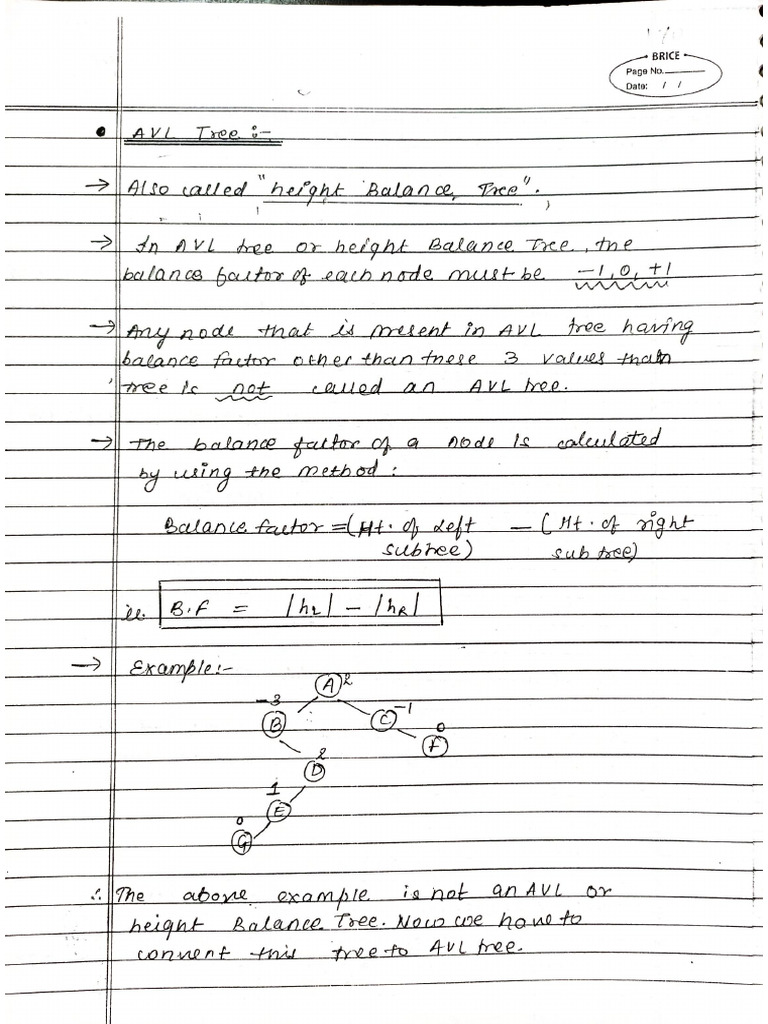 BRICE
Page No.
Date: / /
• AVL Tree :-
→ Also called "height Balance Tree".
→ In AVL tree or height Balance Tree, the
balance factor of each node must be -1, 0, +1
→ Any node that is present in AVL tree having
balance factor other than these 3 values than
tree is not called an AVL tree.
→ The balance factor of a node is calculated
by using the method :
Balance factor = (Ht. of Left — (Ht. of right
subtree) sub tree)
ie. B.F = |hL| - |hR|
→ Example :-
A 2
-3 B C -1
F 0
D 2
1 E
0 G
∴ The above example is not an AVL or
height Balance Tree. Now we have to
convert this tree to AVL tree.